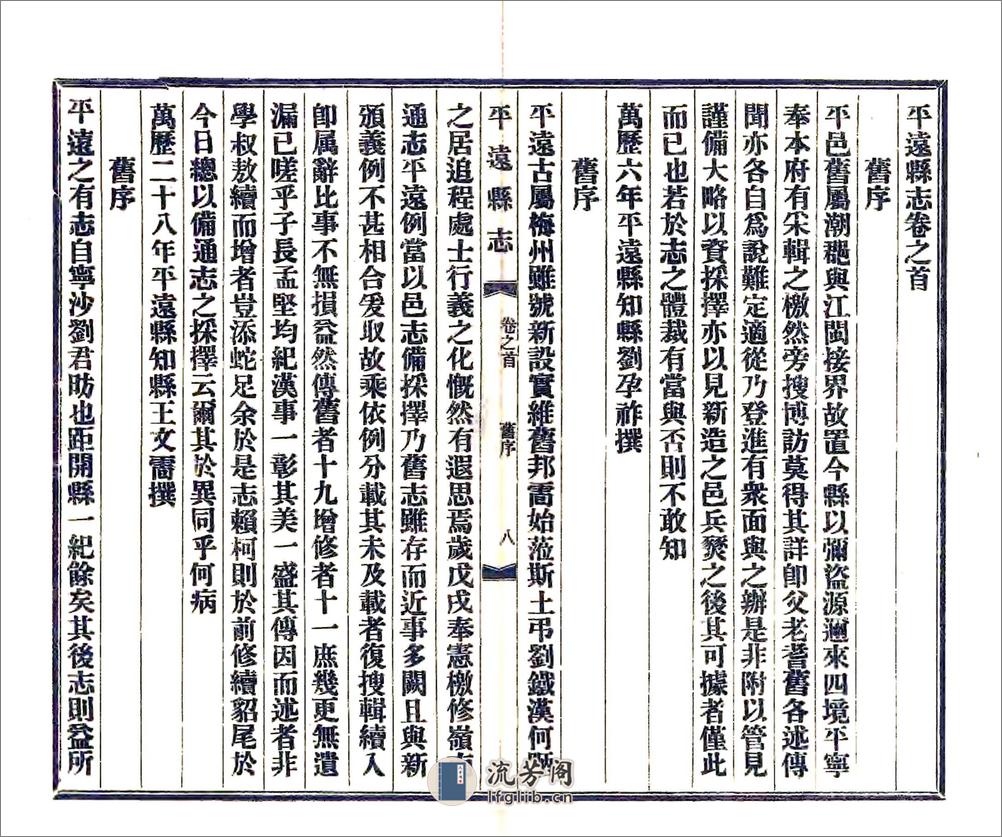 平遠縣志卷之首
舊序
平邑舊屬潮郡與江閩接界故置今縣以彌盜源邇來四境平寧
奉本府有采輯之檄然旁搜博訪莫得其詳卽父老耆舊各述傳
聞亦各自爲說難定適從乃登進有衆面與之辦是非附以管見
謹備大略以資採擇亦以見新造之邑兵燹之後其可據者僅此
而已也若於志之體裁有當與否則不敢知
萬歷六年平遠縣知縣劉孕祚撰
舊序
平遠古屬梅州雖號新設實維舊邦需始蒞斯土弔劉鐵漢何
平遠縣志
卷之首
舊序
八
之居追程處士行義之化慨然有遐思焉歲戊戌奉憲檄修嶺
通志平遠例當以邑志備採擇乃舊志雖存而近事多闕且與新
頒義例不甚相合爰取故乘依例分載其未及載者復搜輯續入
卽属辭比事不無損益然傳舊者十九增修者十一庶幾更無遺
漏已嗟乎子長孟堅均紀漢事一彰其美一盛其傳因而述者非
學叔敖續而增者豈添蛇足余於是志賴柯則於前修續貂尾於
今日總以備通志之採擇云爾其於異同乎何病
萬歷二十八年平遠縣知縣王文需撰
舊序
平遠之有志自寧沙劉君昉也距開縣一紀餘矣其後志則益所
流芳阁
lfglib.cn